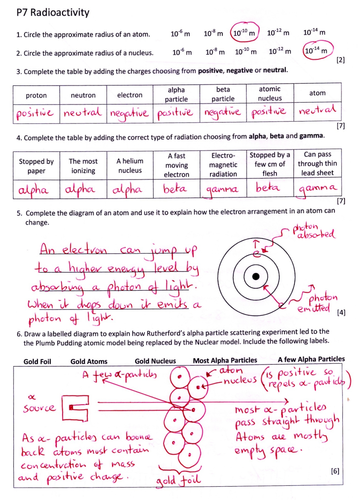 P7 Radioactivity
1. Circle the approximate radius of an atom. 10⁻⁶ m 10⁻⁸ m 10⁻¹⁰ m 10⁻¹² m 10⁻¹⁴ m
2. Circle the approximate radius of a nucleus. 10⁻⁶ m 10⁻⁸ m 10⁻¹⁰ m 10⁻¹² m 10⁻¹⁴ m
[2]
3. Complete the table by adding the charges choosing from positive, negative or neutral.
proton neutron electron alpha particle beta particle atomic nucleus atom
positive neutral negative positive negative positive neutral
[7]
4. Complete the table by adding the correct type of radiation choosing from alpha, beta and gamma.
Stopped by paper The most ionizing A helium nucleus A fast moving electron Electro-magnetic radiation Stopped by a few cm of flesh Can pass through thin lead sheet
alpha alpha alpha beta gamma beta gamma
[7]
5. Complete the diagram of an atom and use it to explain how the electron arrangement in an atom can
change.
photon
absorbed
An electron can jump up
to a higher energy level by
absorbing a photon of light.
When it drops down it emits a
photon of light.
photon
emitted
[4]
6. Draw a labelled diagram to explain how Rutherford's alpha particle scattering experiment led to the
the Plum Pudding atomic model being replaced by the Nuclear model. Include the following labels.
Gold Foil Gold Atoms Gold Nucleus Most Alpha Particles A few Alpha Particles
A few α-particles
atom
nucleus (is positive so
repels α-particles)
α
source
most α-particles
pass straight through
Atoms are mostly
empty space.
As α-particles can bounce
back atoms must contain
concentration of mass
and positive charge.
gold foil
[6]